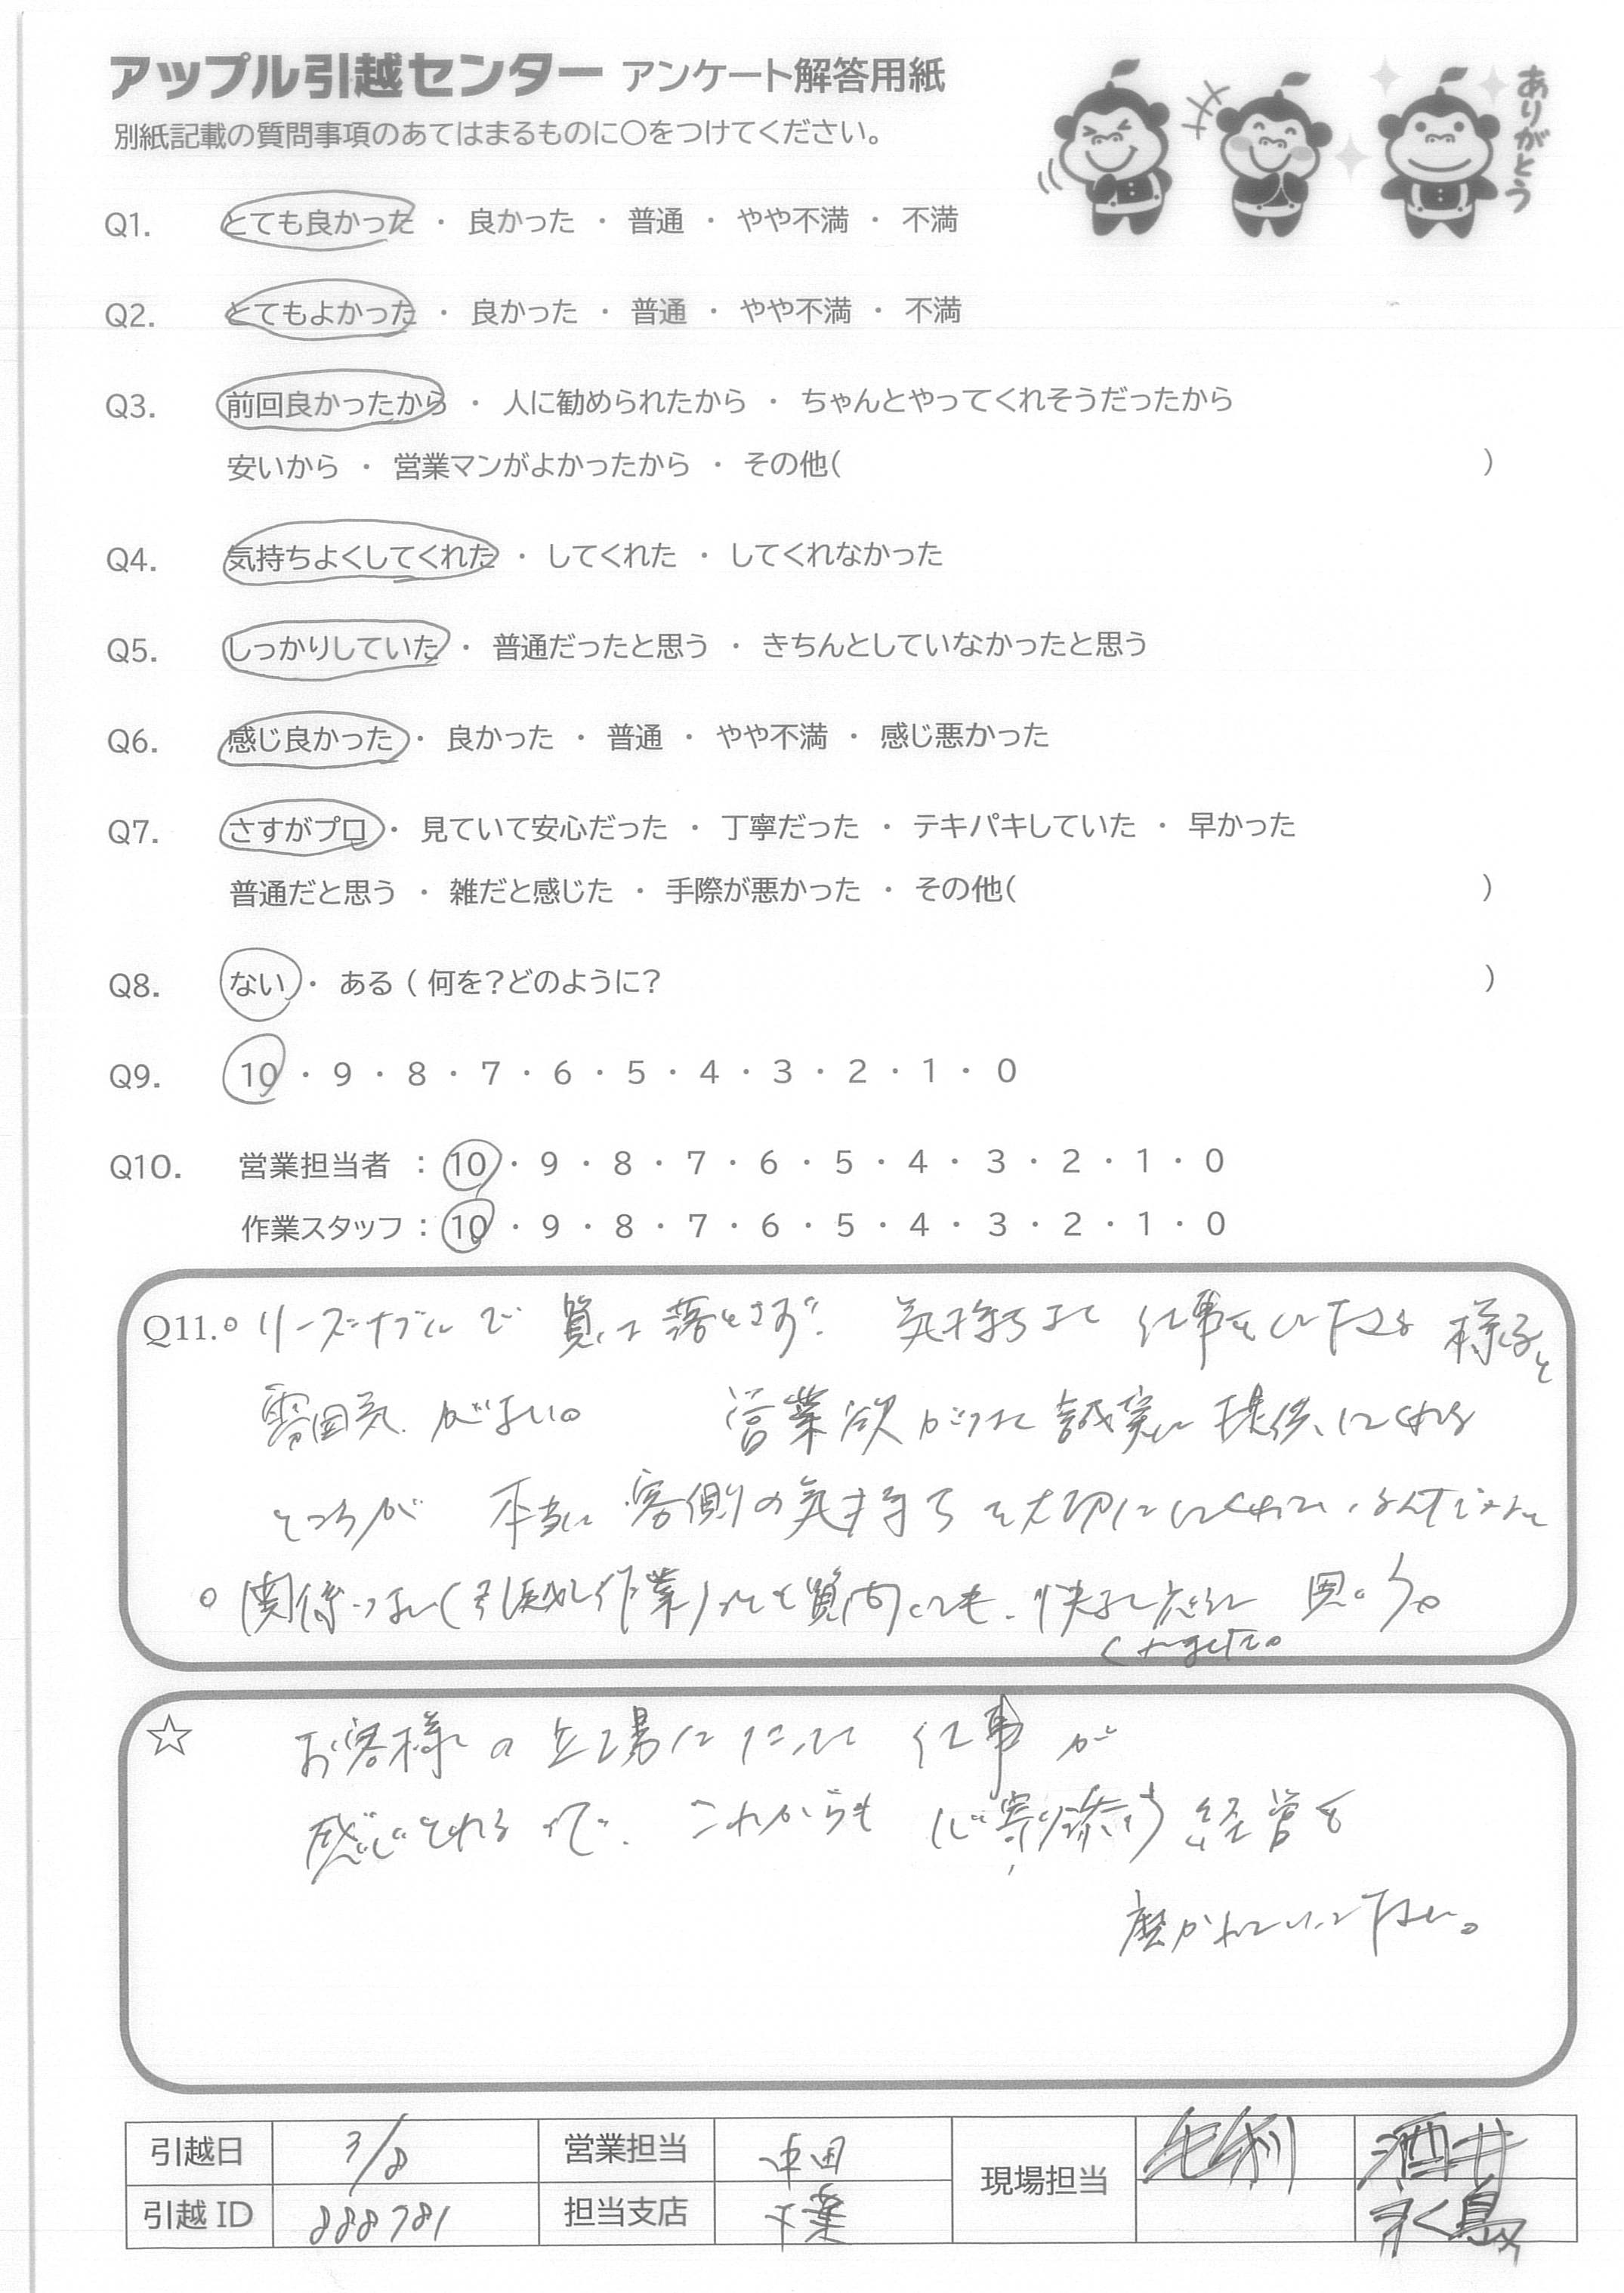 アップル引越センター アンケート解答用紙
ありがとう
別紙記載の質問事項のあてはまるものに○をつけてください。
Q1. とても良かった ・ 良かった ・ 普通 ・ やや不満 ・ 不満
Q2. とてもよかった ・ 良かった ・ 普通 ・ やや不満 ・ 不満
Q3. 前回良かったから ・ 人に勧められたから ・ ちゃんとやってくれそうだったから
安いから ・ 営業マンがよかったから ・ その他( )
Q4. 気持ちよくしてくれた ・ してくれた ・ してくれなかった
Q5. しっかりしていた ・ 普通だったと思う ・ きちんとしていなかったと思う
Q6. 感じ良かった ・ 良かった ・ 普通 ・ やや不満 ・ 感じ悪かった
Q7. さすがプロ ・ 見ていて安心だった ・ 丁寧だった ・ テキパキしていた ・ 早かった
普通だと思う ・ 雑だと感じた ・ 手際が悪かった ・ その他( )
Q8. ない ・ ある ( 何を?どのように? )
Q9. 10 ・ 9 ・ 8 ・ 7 ・ 6 ・ 5 ・ 4 ・ 3 ・ 2 ・ 1 ・ 0
Q10. 営業担当者 : 10 ・ 9 ・ 8 ・ 7 ・ 6 ・ 5 ・ 4 ・ 3 ・ 2 ・ 1 ・ 0
作業スタッフ : 10 ・ 9 ・ 8 ・ 7 ・ 6 ・ 5 ・ 4 ・ 3 ・ 2 ・ 1 ・ 0
Q11.。リーズナブルで 質は落とさず。 気持ちよく 仕事をして下さる 様子と
雰囲気がよい。 営業欲がつよく 誠実に 提供してくれる
ところが 本当に 客側の気持ちを大切にしてくれて
。関係ない(引越し作業) 質問しても、快よく 思う。
くださいました。
☆ お客様の立場にたって 仕事が
感じとれるので、これからも 心寄り添う 経営を
磨かれていって下さい。
引越日 3/8 営業担当 中田 現場担当 毛利 酒井
引越ID 888781 担当支店 千葉 永島